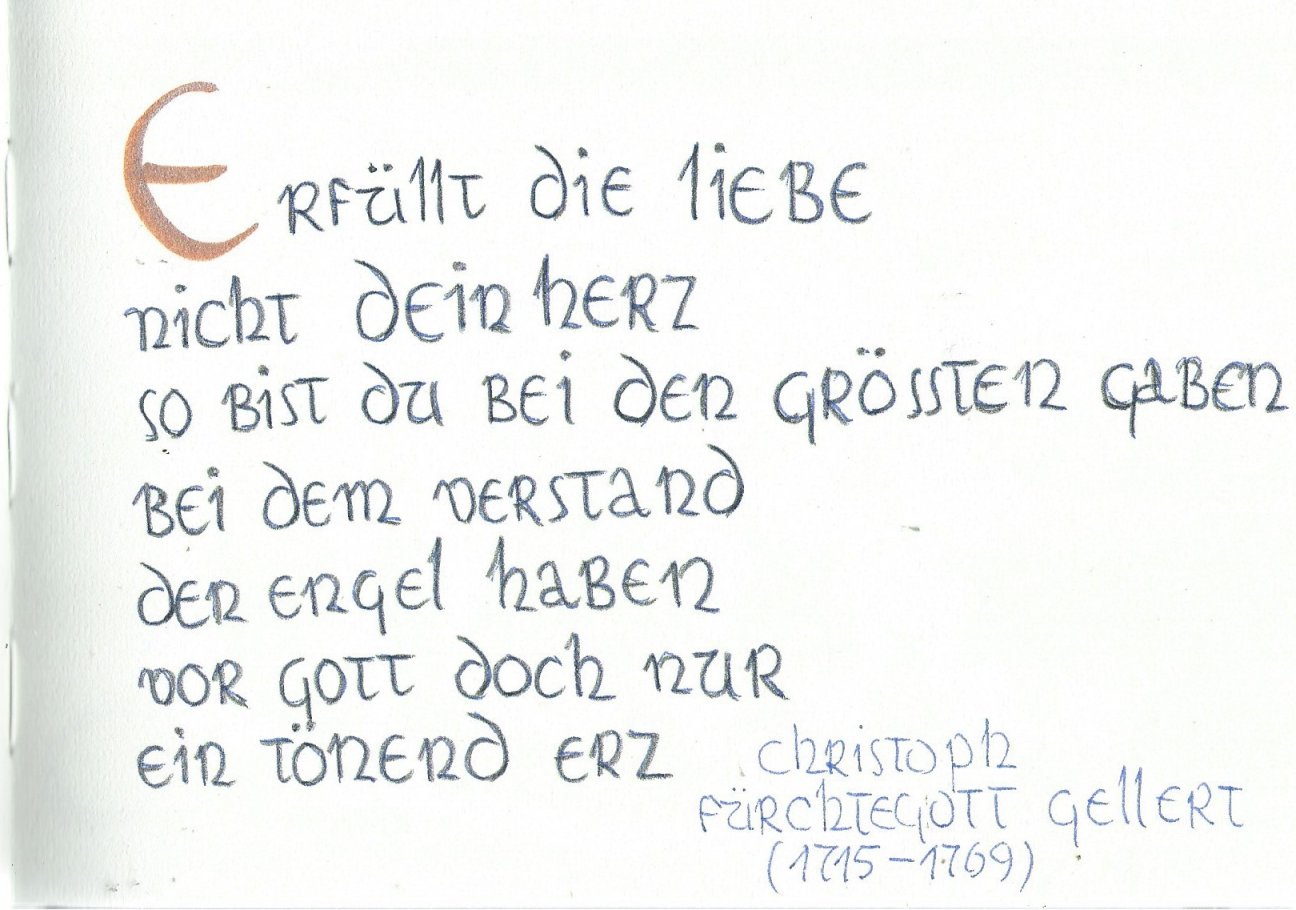 Erfüllt die liebe
nicht dein herz
so bist du bei den grössten gaben
bei dem verstand
der engel haben
vor gott doch nur
ein tönend erz
christoph
fürchtegott gellert
(1715-1769)